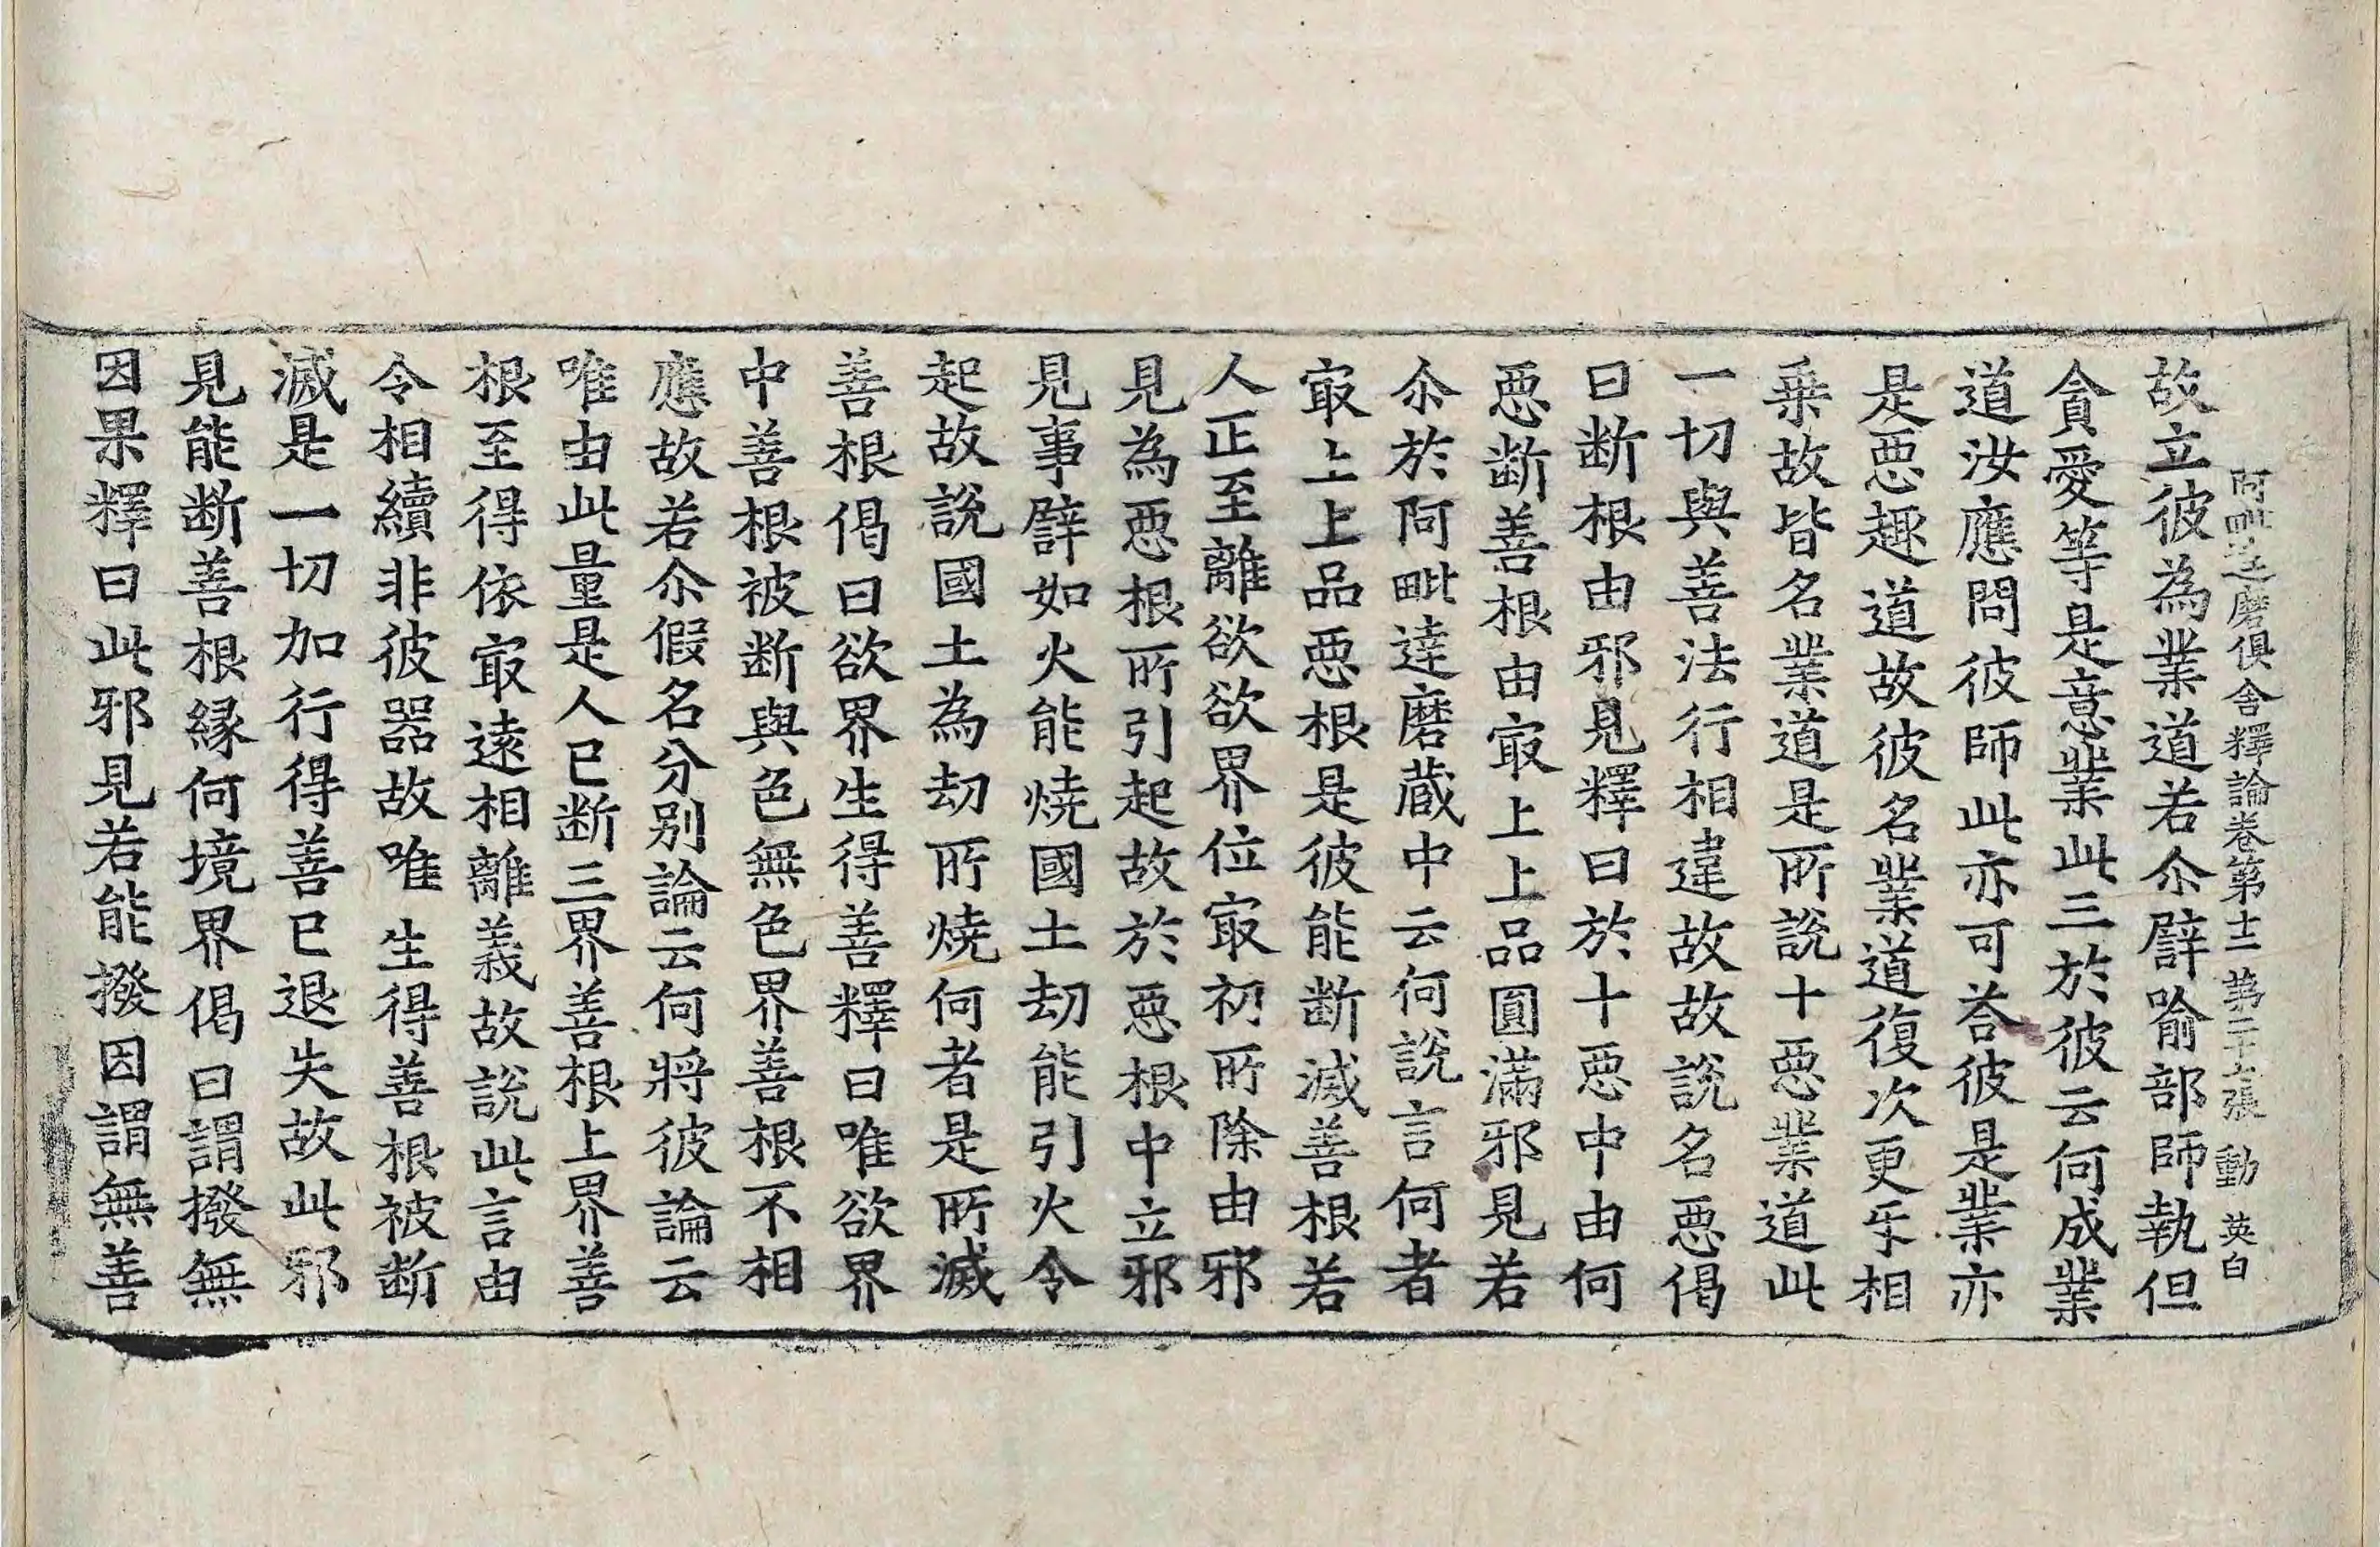 阿毗達磨俱舍釋論卷第十二 第二十六張 動 英白
故立彼為業道若尒譬喻部師執但
貪愛等是意業此三於彼云何成業
道汝應問彼師此亦可荅彼是業亦
是惡趣道故彼名業道復次更乐相
乗故皆名業道是所說十惡業道此
一切與善法行相違故故說名惡偈
曰斷根由邪見釋曰於十惡中由何
惡斷善根由㝡上上品圓滿邪見若
尒於阿毗達磨藏中云何說言何者
㝡上上品惡根是彼能斷滅善根若
人正至離欲欲界位㝡初所除由邪
見為惡根所引起故於惡根中立邪
見事譬如火能燒國土劫能引火令
起故說國土為劫所燒何者是所滅
善根偈曰欲界生得善釋曰唯欲界
中善根被斷與色無色界善根不相
應故若尒假名分別論云何將彼論云
唯由此量是人已斷三界善根上界善
根至得依㝡遠相離義故說此言由
令相續非彼器故唯生得善根被斷
滅是一切加行得善已退失故此邪
見能斷善根緣何境界偈曰謂撥無
因果釋曰此邪見若能撥因謂無善